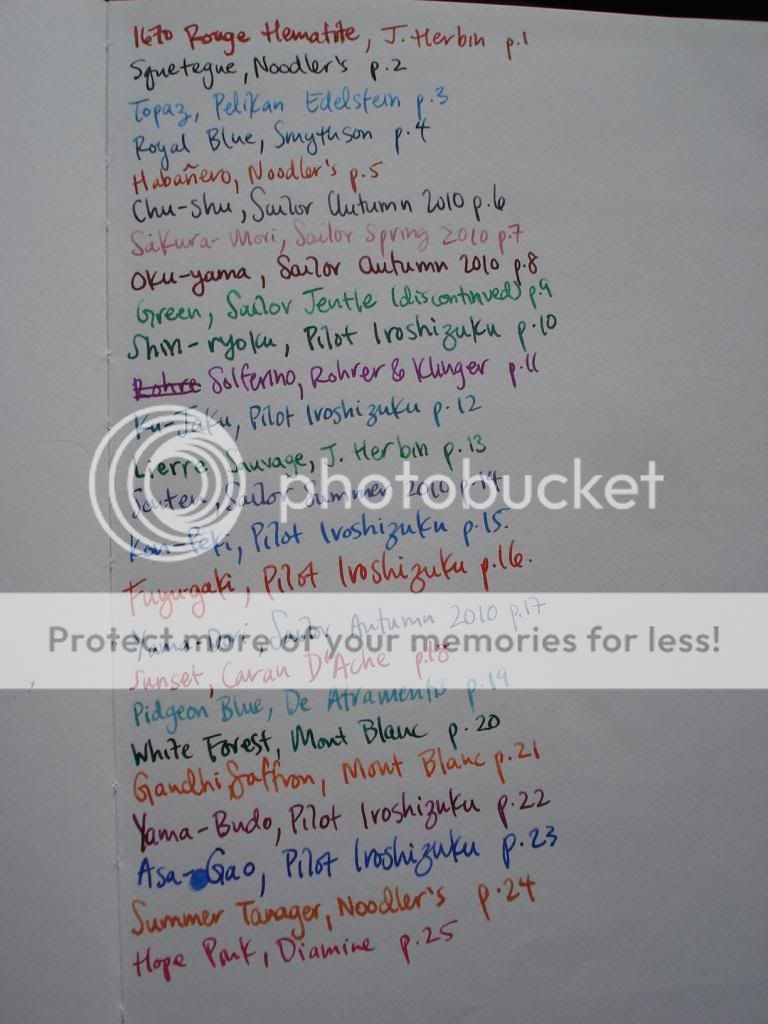 1670 Rouge Hematite, J. Herbin p.1
Squeteague, Noodler's p.2
Topaz, Pelikan Edelstein p.3
Royal Blue, Smythson p.4
Habañero, Noodler's p.5
Chu-Shu, Sailor Autumn 2010 p.6
Sakura-Mori, Sailor Spring 2010 p.7
Oku-yama, Sailor Autumn 2010 p.8
Green, Sailor Jentle (discontinued) p.9
Shin-ryoku, Pilot Iroshizuku p.10
Rohre Solferino, Rohrer & Klinger p.11
Ku-Jaku, Pilot Iroshizuku p.12
Lierre Sauvage, J. Herbin p.13
Souten, Sailor Summer 2010 p.14
photobucket
Kon-Peki, Pilot Iroshizuku p.15.
Fuyu-gaki, Pilot Iroshizuku p.16.
Yama-Dori, Sailor Autumn 2010 p.17
Protect more of your memories for less!
Sunset, Caran D'Ache p.18
Pidgeon Blue, De Atramentis p.19
White Forest, Mont Blanc p.20
Gandhi Saffron, Mont Blanc p.21
Yama-Budo, Pilot Iroshizuku p.22
Asa-Gao, Pilot Iroshizuku p.23
Summer Tanager, Noodler's p.24
Hope Pink, Diamine p.25